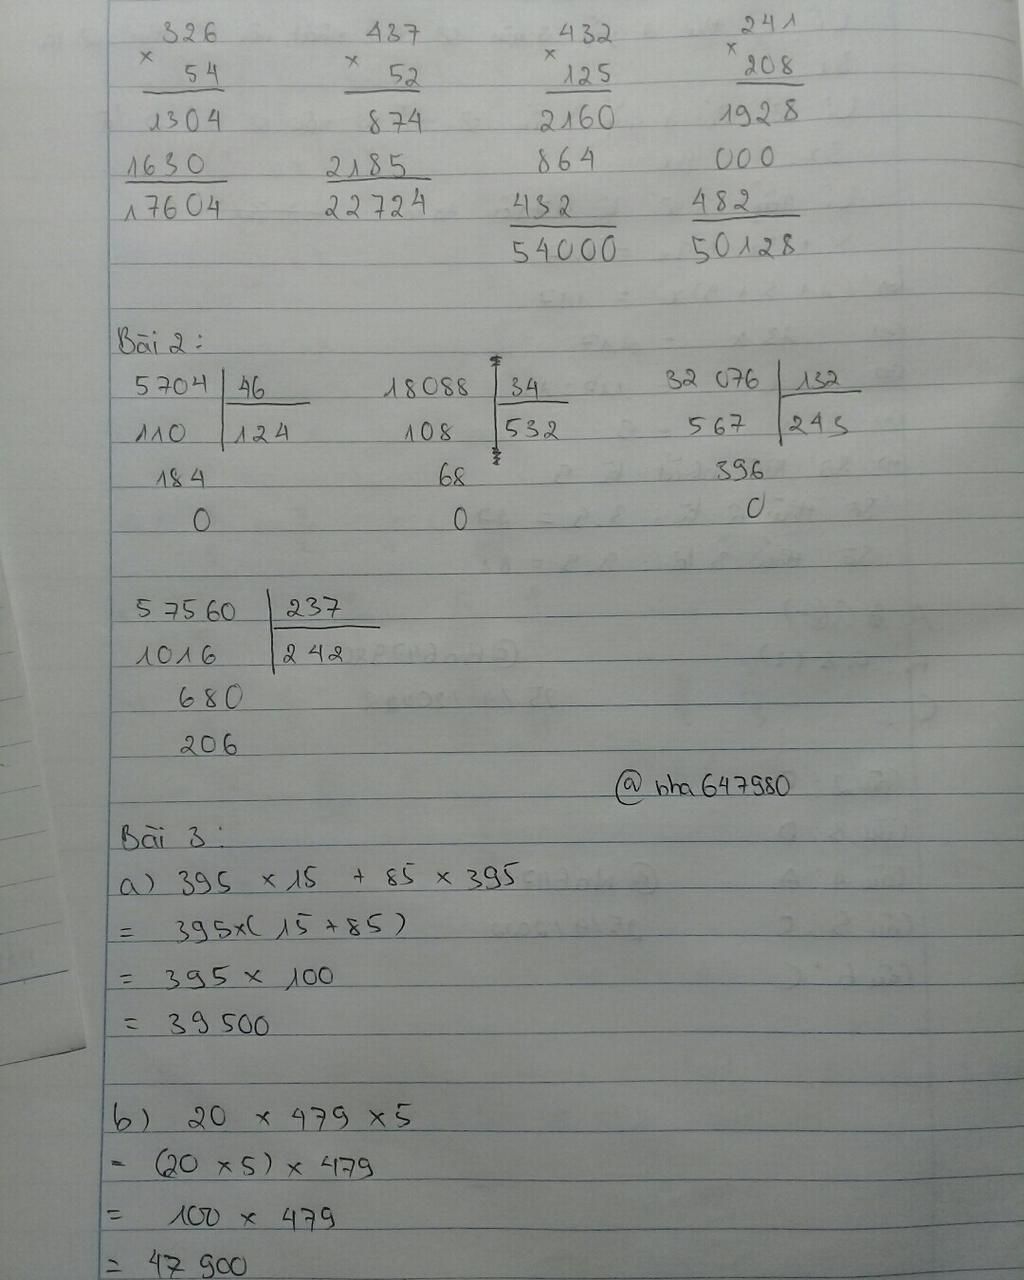 326 437 432 241
× × × ×
54 52 125 208
1304 874 2160 1928
1630 2185 864 000
17604 22724 432 482
54000 50128
Bài 2:
5704 46 18088 34 32 076 132
110 124 108 532 567 243
184 68 396
0 0 0
57560 237
1016 242
680
206
@nha647980
Bài 3:
a) 395 × 15 + 85 × 395
= 395×( 15 + 85)
= 395 × 100
= 39 500
b) 20 × 479 × 5
= (20 × 5) × 479
= 100 × 479
= 47 900